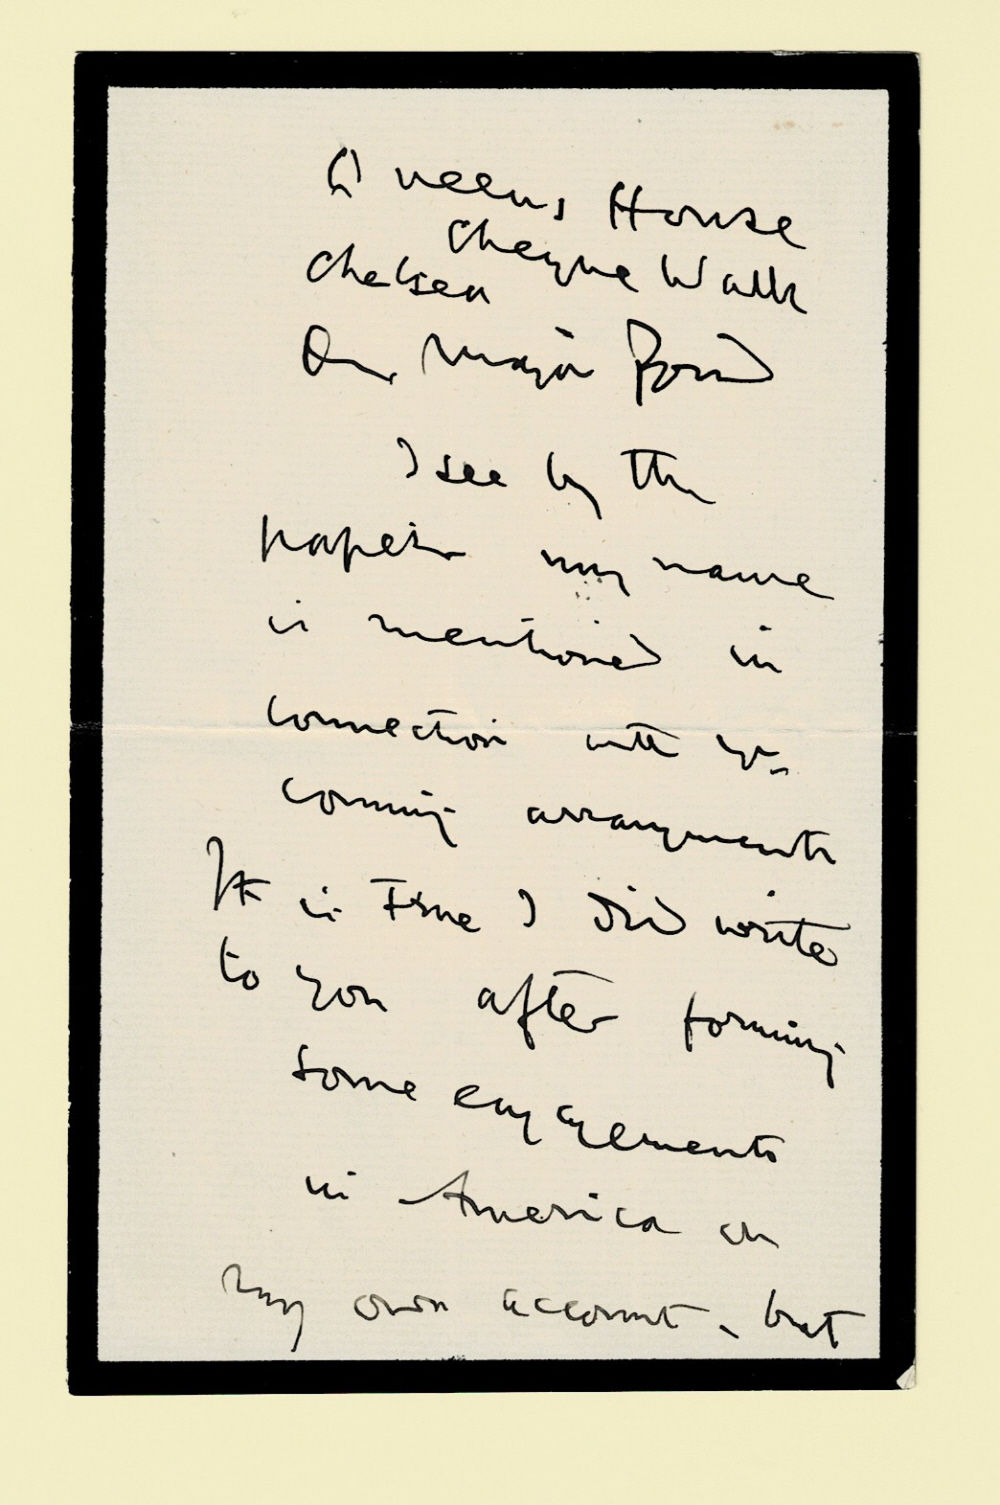 Queens House
Cheyne Walk
Chelsea
Dear Major Pond
I see by the
papers my name
is mentioned in
connection with yr
coming arrangements
It is true I did write
to you after forming
some engagements
in America on
my own account, but